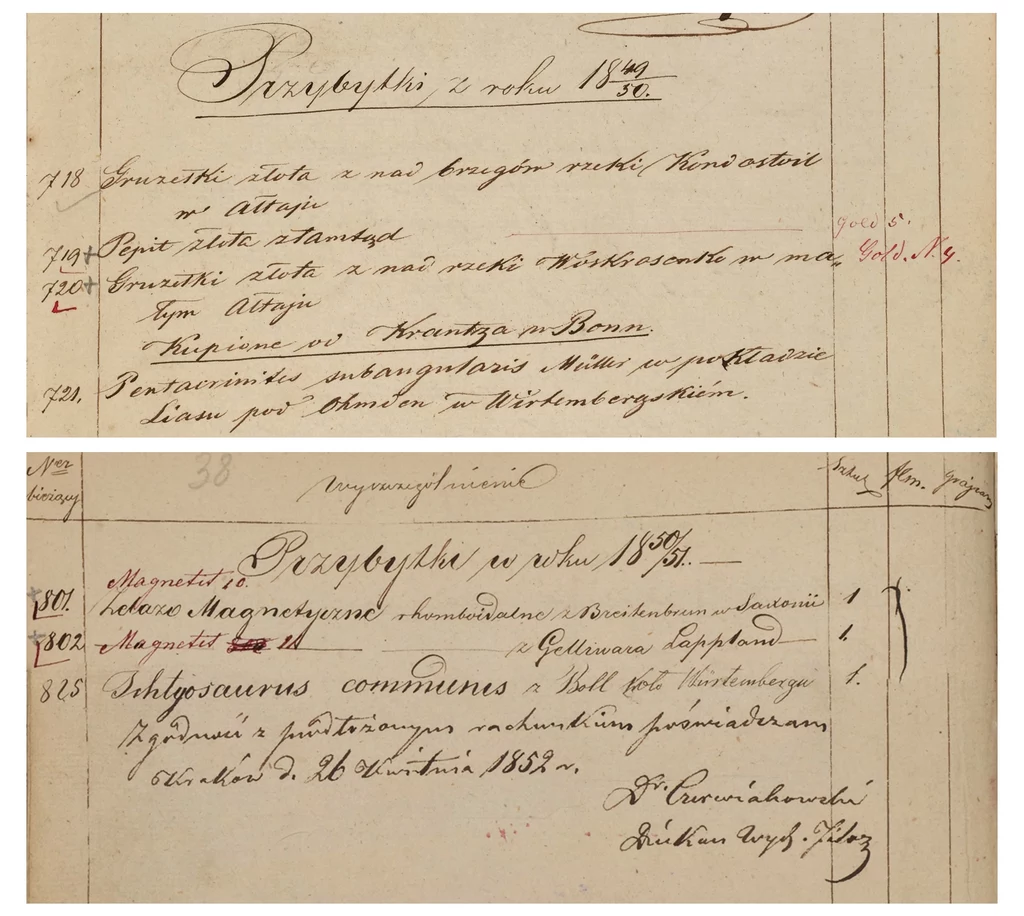 Przybytki z roku 1849/50.
718 Gruzełki złota z nad brzegów rzeki Kondostoil
w Ałtaju
719 + Pepit złota ztamtąd
gold 5.
720 + Gruzełki złota z nad rzeki Woskrosenko w ma„ Gold. N. 4.
łym Ałtaju
Kupione od Krantza w Bonn.
721. Pentacrinites subangularis Müller w pokładzie
Liasu pod Ohmden w Wirtembergskiém.
Ner bieżący 38 Wyszczególnienie Sztuk flm.
Przybytki w roku 1850/51.
Magnetit 10.
+ 801. Żelazo Magnetyczne rhomboidalne z Breitenbrun w Saxonii 1
+ 802 Magnetit 11 z Gelliwara Lappland 1.
825 Ichtyosaurus communis z Boll koło Würtembergu 1.
Zgodność z podłożonym rachunkiem poświadczam
Kraków d. 26 Kwietnia 1852 r.
Dr. Czerwiakowski
Dziekan Wydz. Filoz